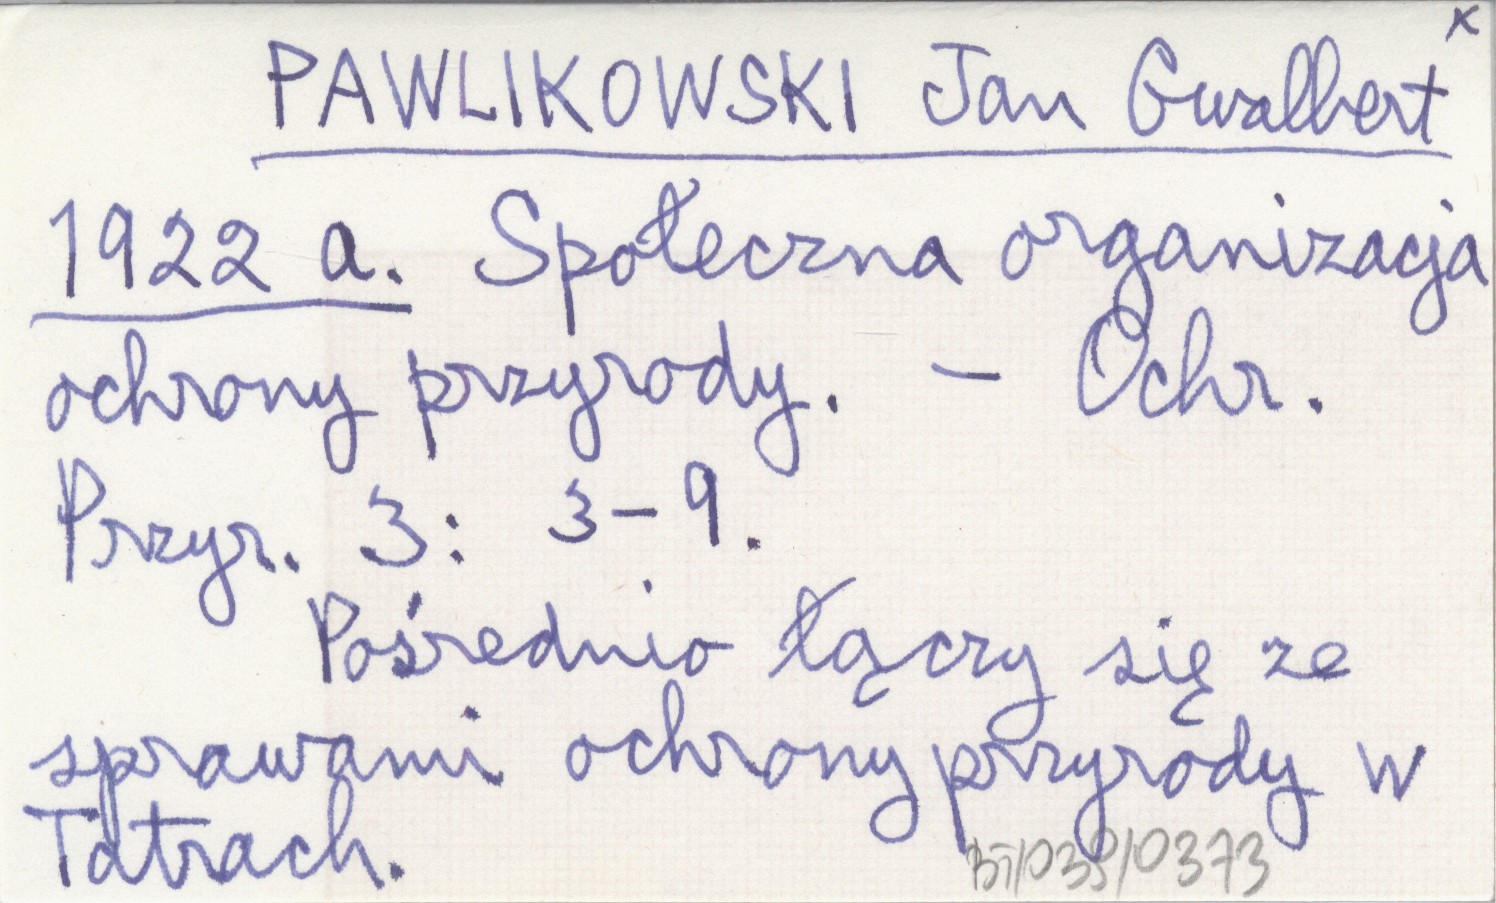 x
PAWLIKOWSKI Jan Gwalbert
1922 a. Społeczna organizacja
ochrony przyrody. – Ochr.
Przyr. 3: 3–9.
Pośrednio łączy się ze
sprawami ochrony przyrody w
Tatrach.
BT/035/0373